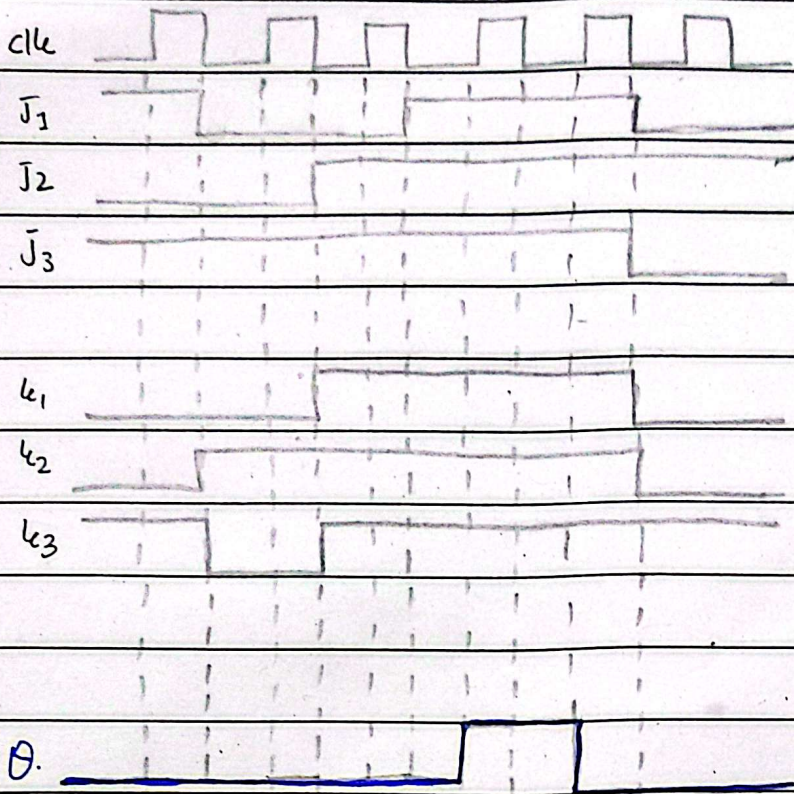 clk
J1
J2
J3
k1
k2
k3
Q.